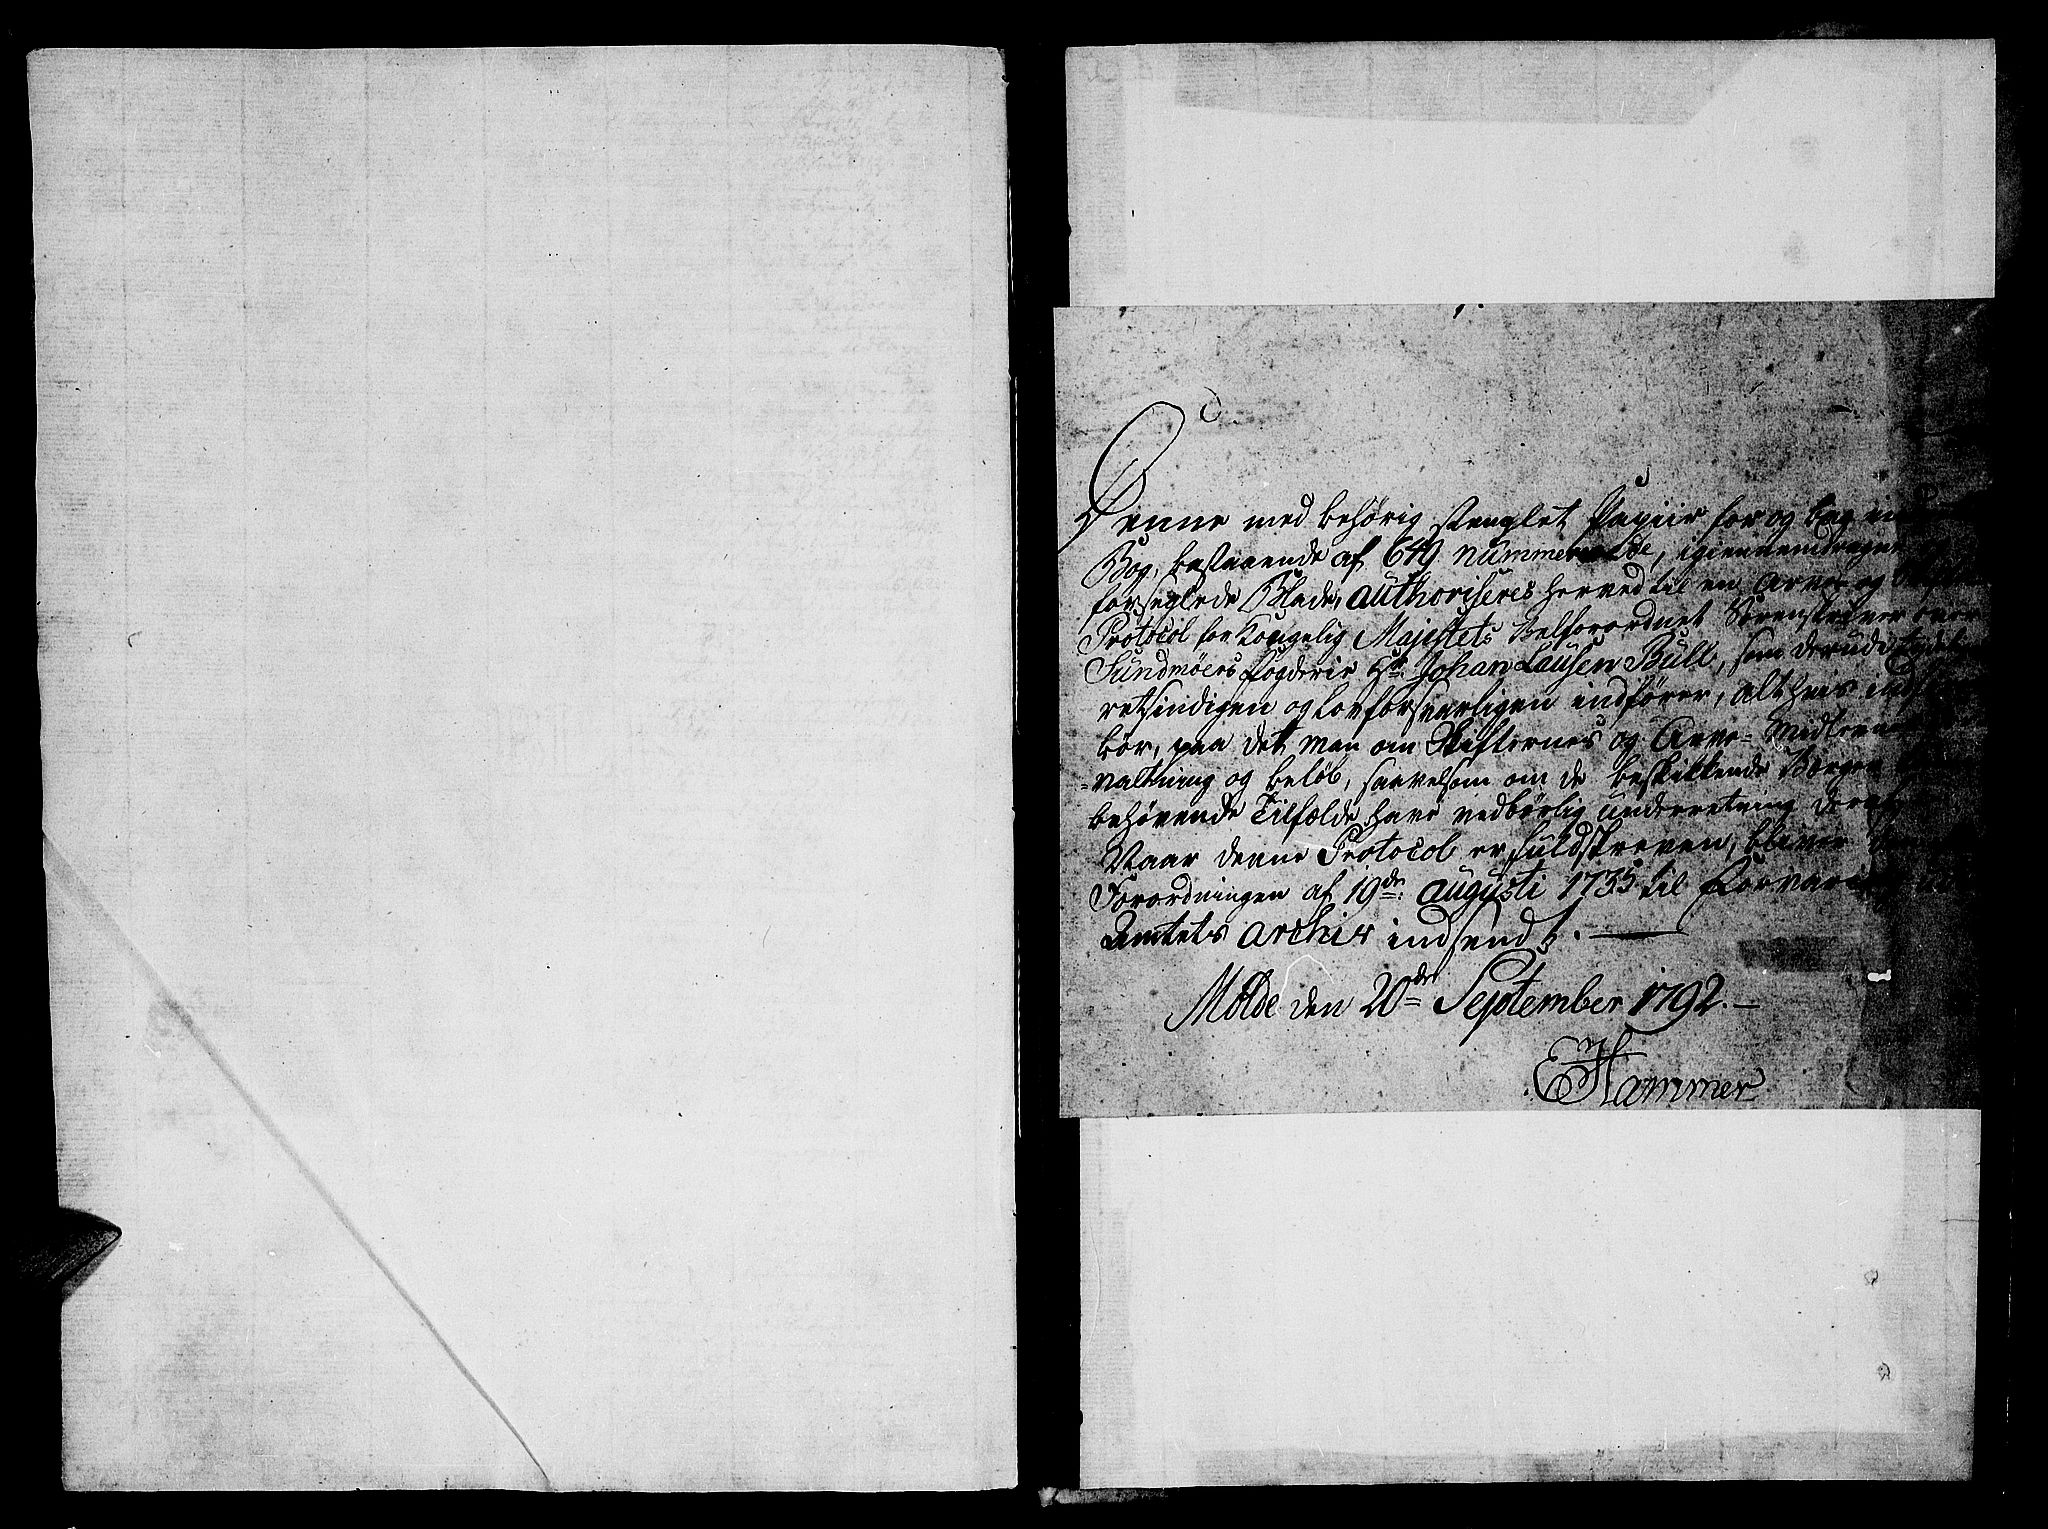 Denne med behörig stemplet Papiir for og bag
Bog, bestaaende af 649 nummererede, igiennemdragne og
forseglede Blade, authoriseres herved til en Arve og
Protocol for Kongelig Majestets Velforordnet Sorenskriver over
Sundmöers Fogderie Hr. Johan Lausen Bull, som derudi
retsindigen og lovforsvarligen indförer, alt hvis
bör, paa det man om Skifternes og Arve-Midlernes
-valtning og belöb, saavelsom om de beskikkende
behövende Tilfælde have vedbörlig underretning
Naar denne Protocol er fuldskreven, bliver
Forordningen af 19de Augusti 1735 til Forvaring
Amtets Archiv indsendt.
Molde den 20de September 1792.
EHammer